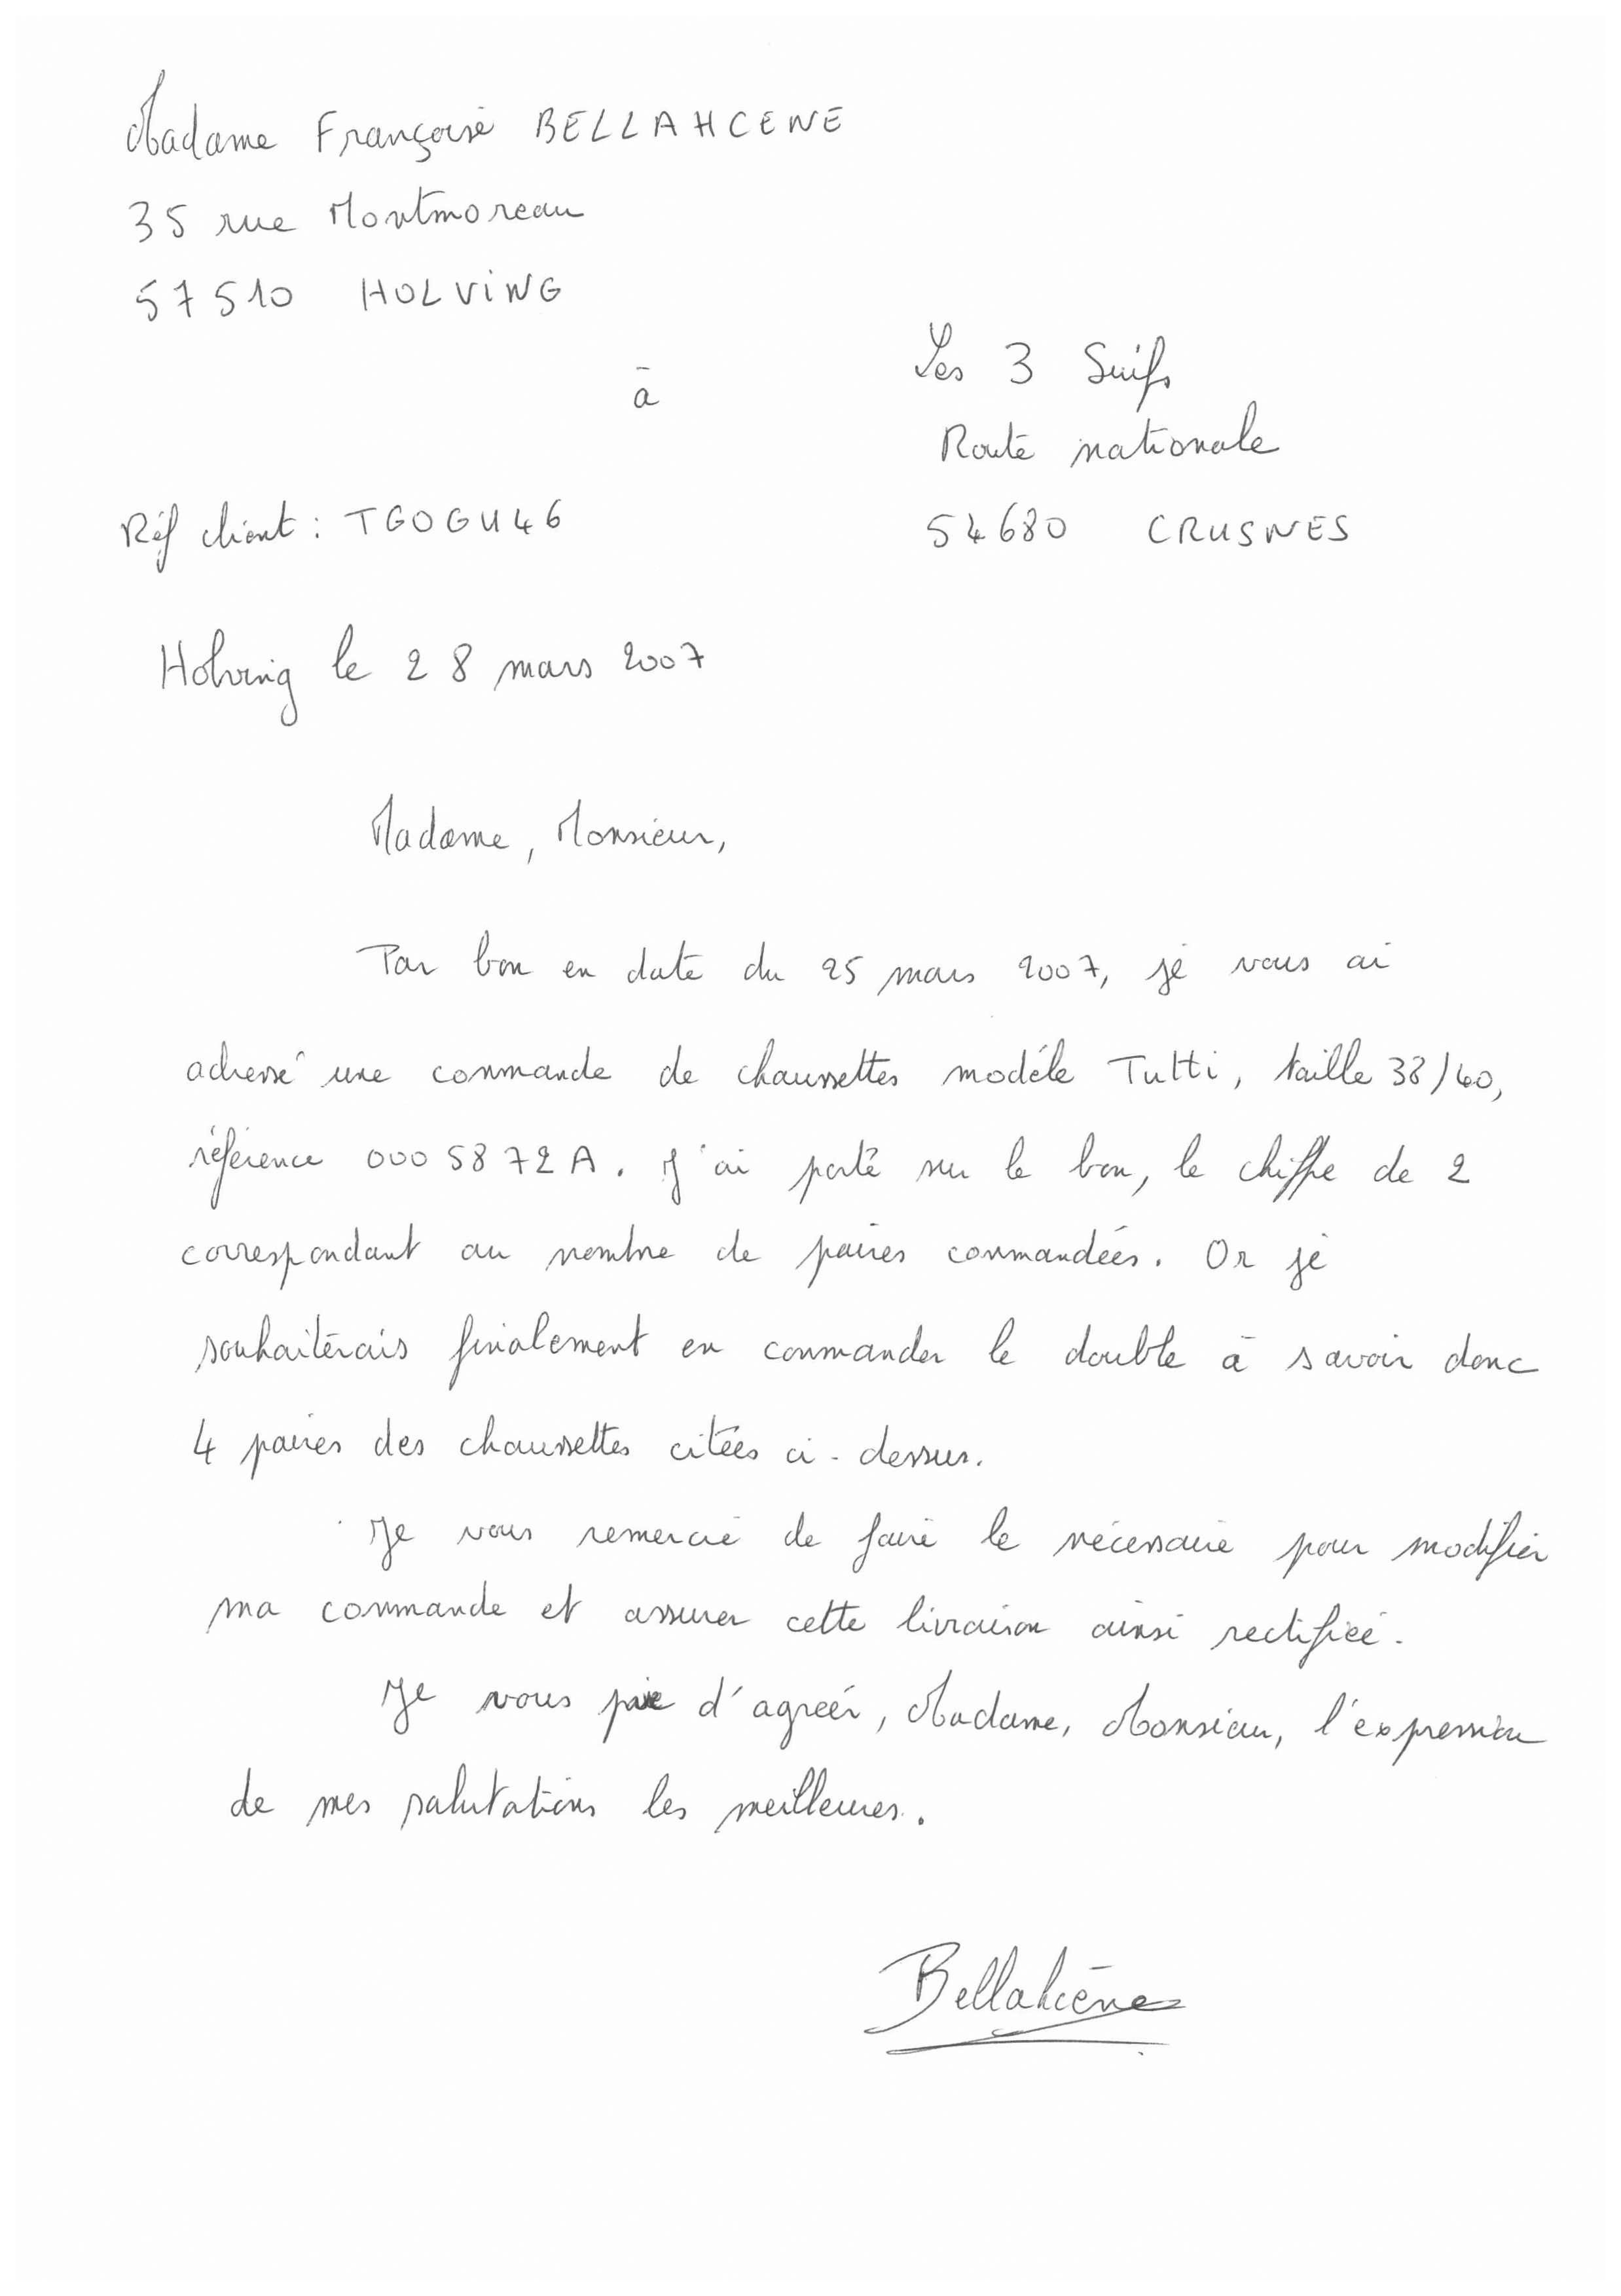 Madame Françoise BELLAHCENE
35 rue Montmoreau
57510 HOLVING
à
Les 3 Suifs
Route nationale
54680 CRUSNES
Réf client : TGOGU46
Holving le 28 mars 2007
Madame, Monsieur,
Par bon en date du 25 mars 2007, je vous ai
adressé une commande de chaussettes modèle Tutti, taille 38/40,
référence 0005872A. J'ai porté sur le bon, le chiffre de 2
correspondant au nombre de paires commandées. Or je
souhaiterais finalement en commander le double à savoir donc
4 paires des chaussettes citées ci-dessus.
Je vous remercie de faire le nécessaire pour modifier
ma commande et assurer cette livraison ainsi rectifiée.
Je vous prie d'agréer, Madame, Monsieur, l'expression
de mes salutations les meilleures.
Bellahcène